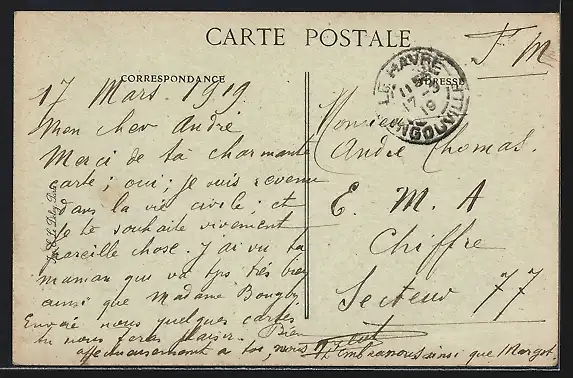 CARTE POSTALE
F M
CORRESPONDANCE
ADRESSE
LE HAVRE
INGOUVILLE
17 Mars 1919
Mon cher André
Merci de ta charmante
carte ; oui ; je suis revenu
dans la vie civile ; et
je te souhaite vivement
pareille chose. J'ai vu ta
maman qui va tjs très bien
ainsi que Madame
Envoie nous quelques cartes
tu nous feras plaisir. Bien
affectueusement a toi, nous t'embrassons ainsi que Margot
Monsieur
André Thomas.
E. M. A
Chiffre
Secteur 77